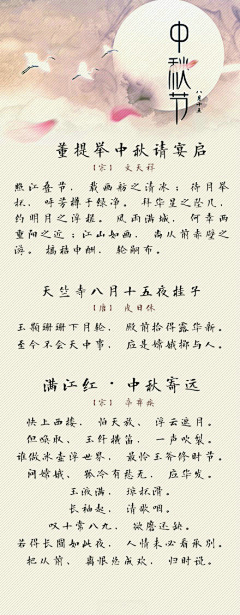 中秋节
八月十五
董提举中秋请宴启
【宋】 文天祥
照江叠节, 载画舫之清冰; 待月举
杯, 呼芳樽于绿净。 拜华星之坠几,
约明月之浮槎。 风雨满城, 何幸两
重阳之近; 江山如画, 尚从前赤壁之
游。 摛秸申酬, 轮嗣布。
天竺寺八月十五夜桂子
【唐】 皮日休
玉颗珊珊下月轮, 殿前拾得露华新。
至今不会天中事, 应是嫦娥掷与人。
满江红·中秋寄远
【宋】 辛弃疾
快上西楼, 怕天放、 浮云遮月。
但唤取、 玉纤横笛, 一声吹裂。
谁做冰壶浮世界, 最怜玉斧修时节。
问嫦娥、 孤冷有愁无, 应华发。
玉液满, 琼杯滑。
长袖起, 清歌咽。
叹十常八九, 欲磨还缺。
若得长圆如此夜, 人情未必看承别。
把从前、 离恨总成欢, 归时说。